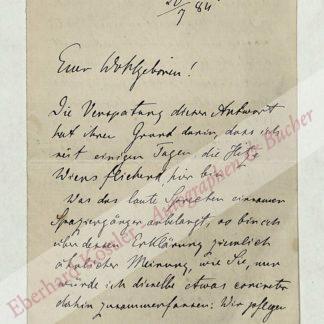 20/7 84
Euer Wohlgeboren!
Die Verspätung dieser Antwort
hat ihren Grund darin, dass ich
seit einigen Tagen die Hitze
Wiens fliehend, hier bin.
Was das laute Sprechen einsamer
Spaziergänger anbelangt, so bin ich
über dessen Erklärung ziemlich
ähnlicher Meinung, wie Sie, nur
würde ich dieselbe etwas concreter
dahin zusammenfassen: Wir pflegen
Eberhard Köstler Autographen & Bücher